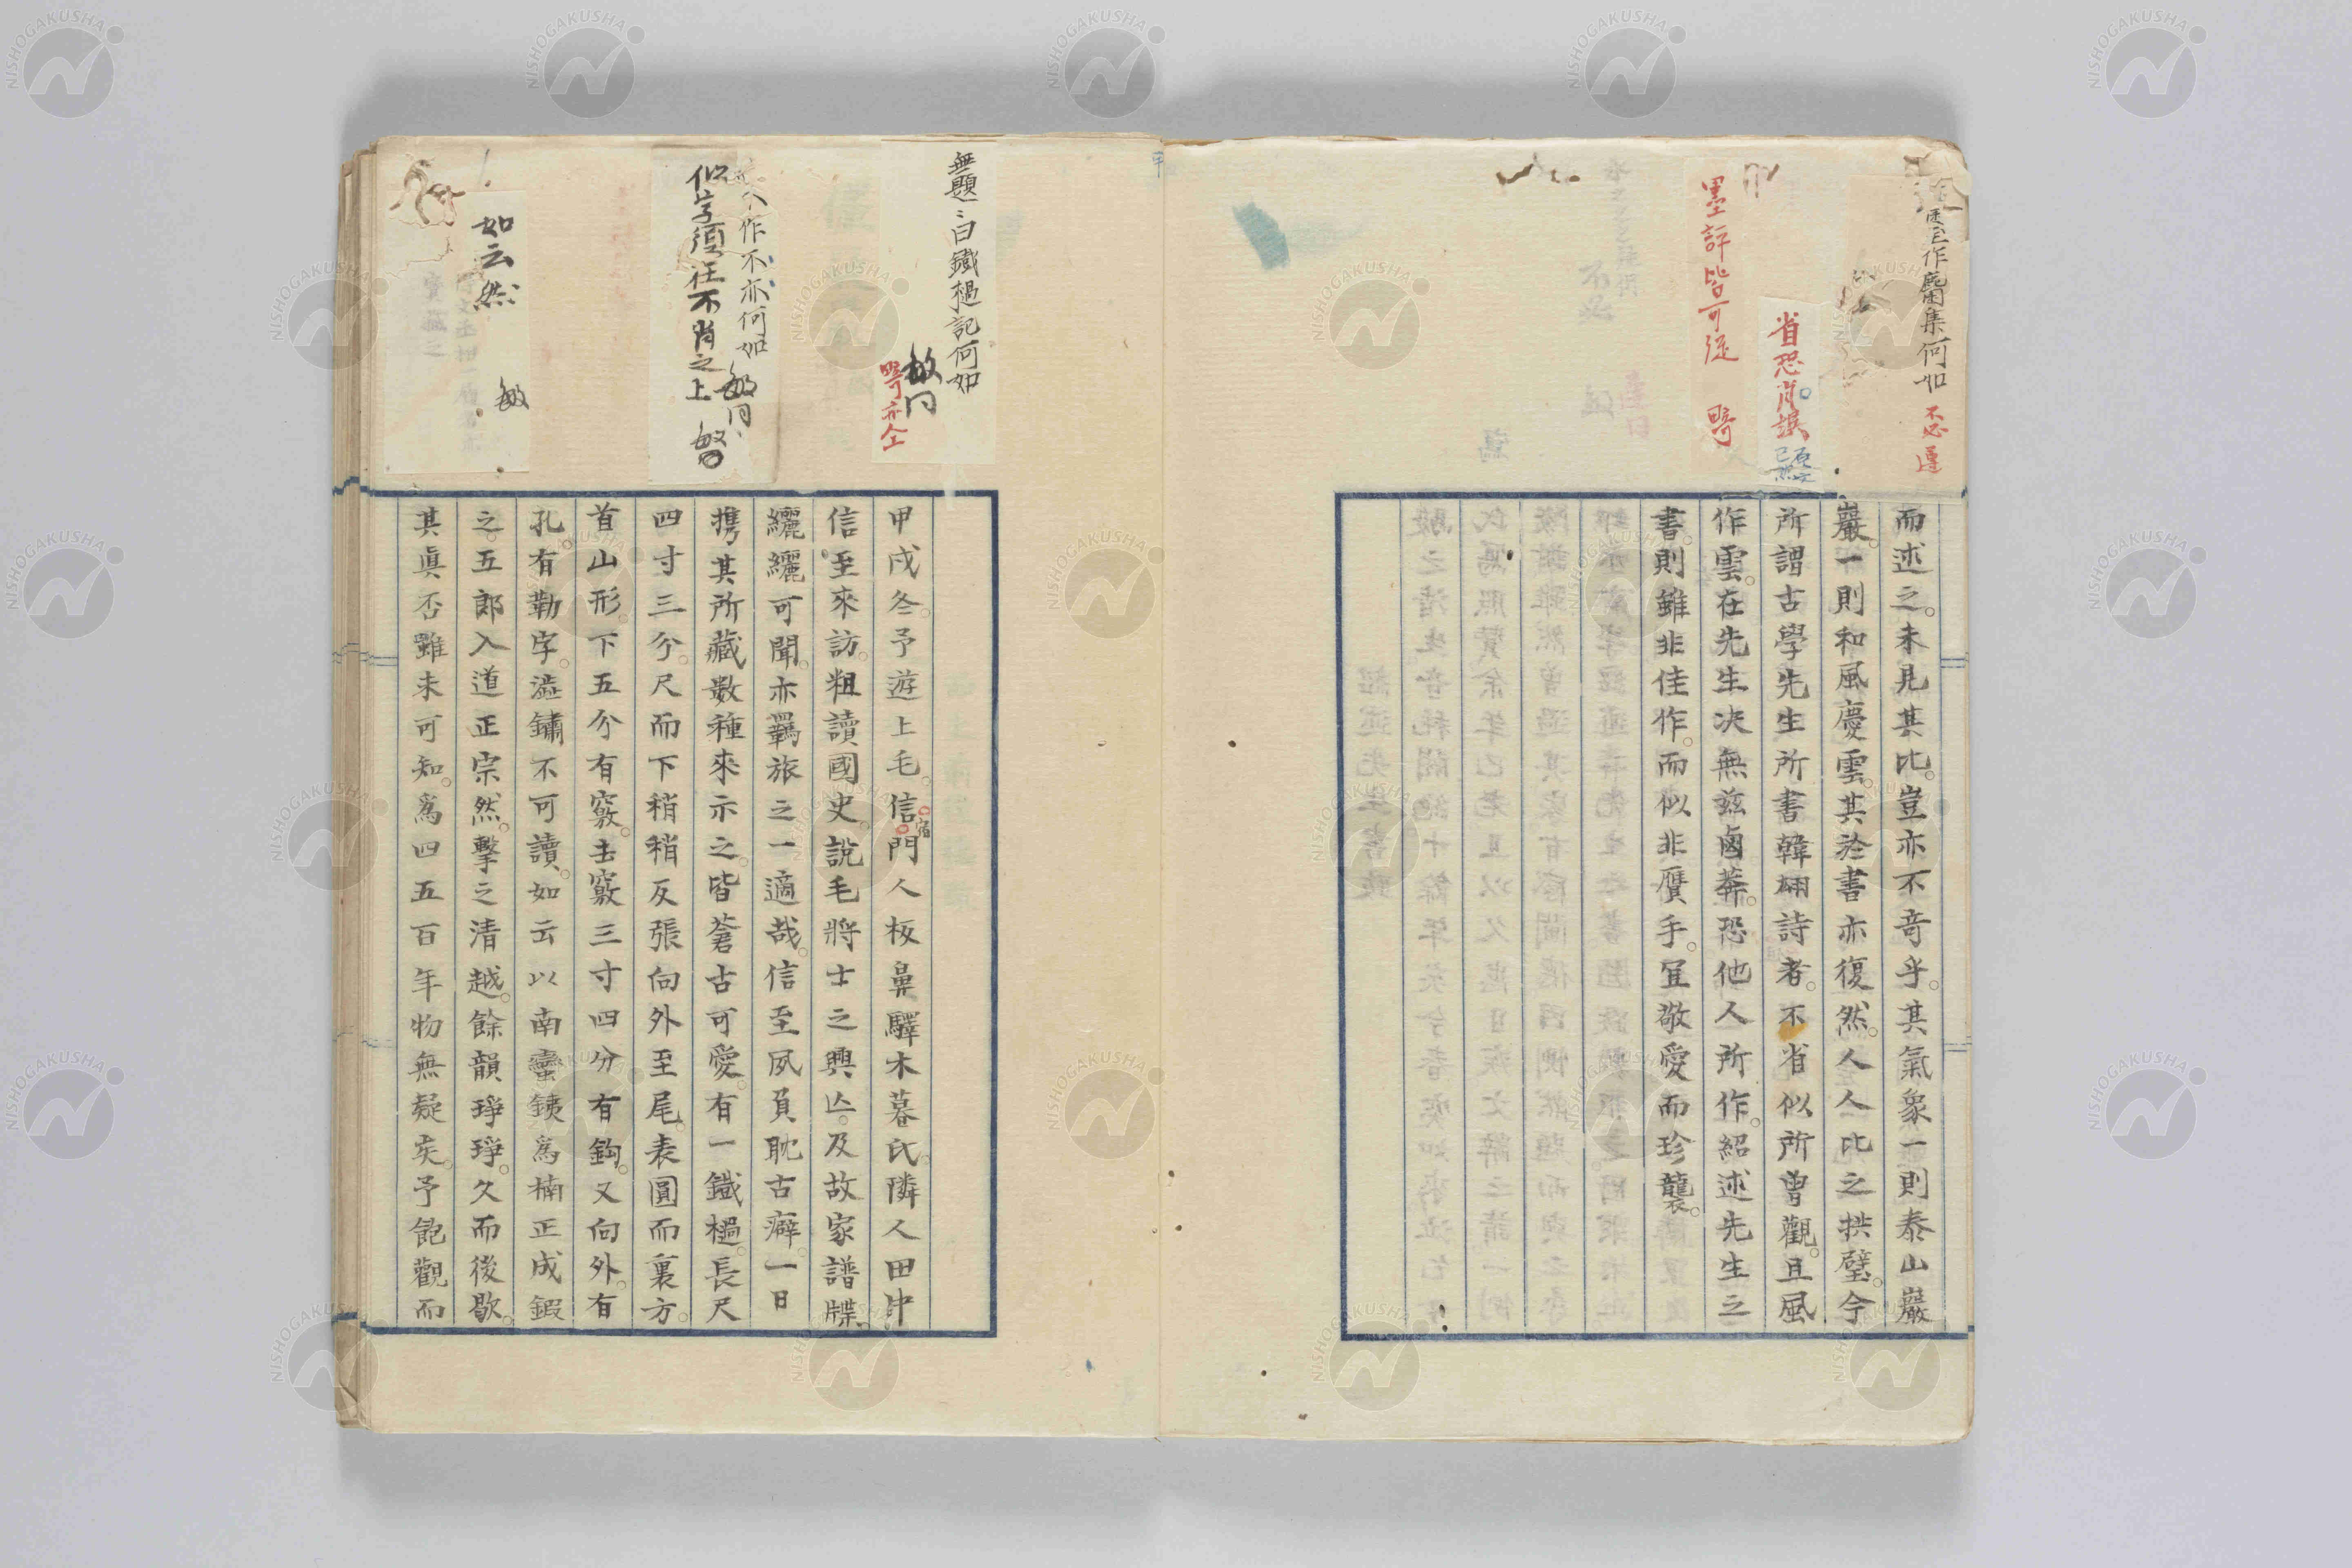 麕集何如
不必
省恐肖誤
墨評皆可從
而述之。未見其比。豈亦不奇乎。其氣象一則泰山巖
巖。一則和風慶雲。其於書亦復然。人人比之拱璧。今
所謂古學先生所書韓翃詩者。不省似所曾觀。且風
作雲。在先生決無茲鹵莽。恐他人所作。紹述先生之
書則雖非佳作。而似非贋手。宜敬愛而珍襲。
無題
白鐵檛記何如
敏同
作不亦何如
敏同
似字須在不肖之上
如云然
敏
甲戌冬。予遊上毛。信門人板鼻驛木暮氏。隣人田中
宿
信至來訪。粗讀國史。說毛將士之興亾。及故家譜牒。
纚纚可聞。亦羈旅之一適哉。信至夙負耽古癖。一日
携其所藏數種來示之。皆蒼古可愛。有一鐵檛。長尺
四寸三分。尺而下稍稍反張向外至尾。表圓而裏方。
首山形下五分有竅。去竅三寸四分有鈎。又向外。有
孔。有勒字。澁鏽不可讀。如云以南蠻銕爲楠正成鍜
之。五郎入道正宗然。擊之清越。餘韻琤琤。久而後歇。
其眞否雖未可知。爲四五百年物無疑矣。予飽觀而